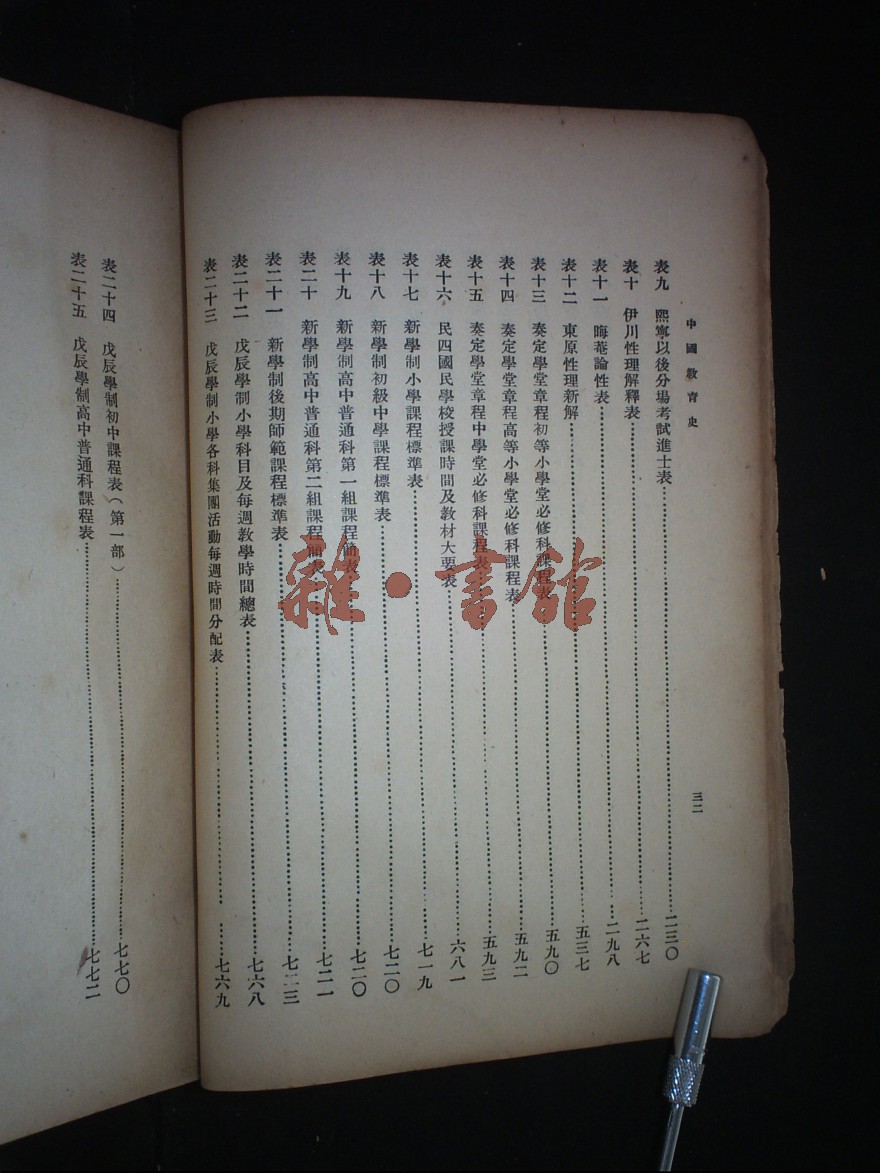 中國教育史
三二
表九 熙寧以後分場考試進士表……二三〇
表十 伊川性理解釋表……二六七
表十一 晦菴論性表……二九八
表十二 東原性理新解……五三七
表十三 奏定學堂章程初等小學堂必修科課程表……五九〇
表十四 奏定學堂章程高等小學堂必修科課程表……五九二
表十五 奏定學堂章程中學堂必修科課程表……五九三
表十六 民四國民學校授課時間及教材大要表……六八一
表十七 新學制小學課程標準表……七一九
表十八 新學制初級中學課程標準表……七二〇
表十九 新學制高中普通科第一組課程簡表……七二〇
表二十 新學制高中普通科第二組課程簡表……七二一
表二十一 新學制後期師範課程標準表……七二三
表二十二 戊辰學制小學科目及每週教學時間總表……七六八
表二十三 戊辰學制小學各科集團活動每週時間分配表……七六九
表二十四 戊辰學制初中課程表（第一部）……七七〇
表二十五 戊辰學制高中普通科課程表……七七二
雜·書館